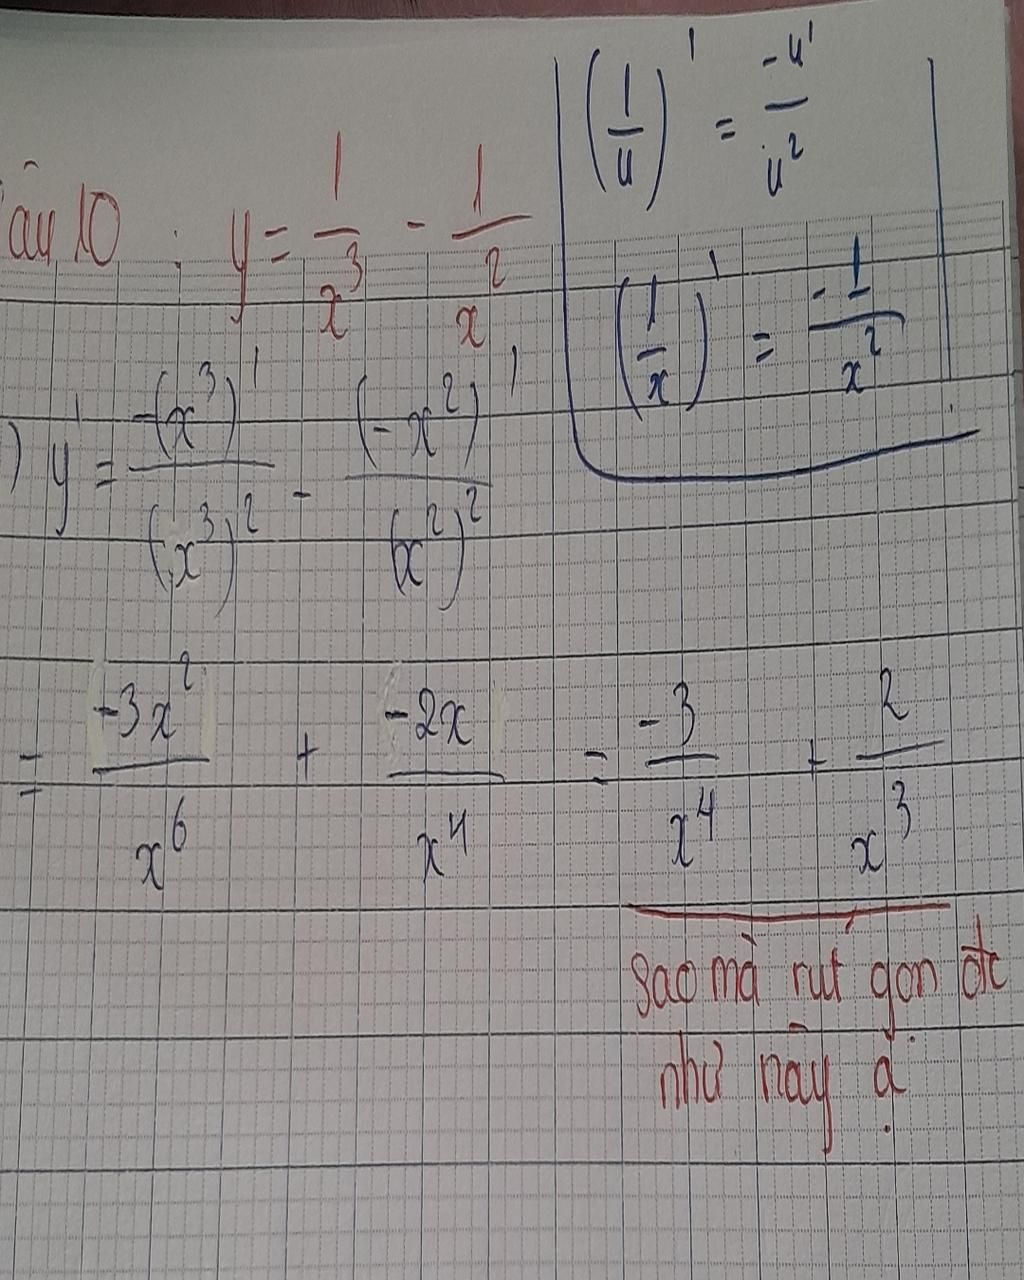 âu 10 : y = 1/x³ - 1/x²
(1/u)' = -u'/u²
(1/x)' = -1/x²
) y' = -(x³)'/(x³)² - (-x²)'/(x²)²
= -3x²/x⁶ + -2x/x⁴ = -3/x⁴ + 2/x³
sao mà rút gọn đc
như này ạ